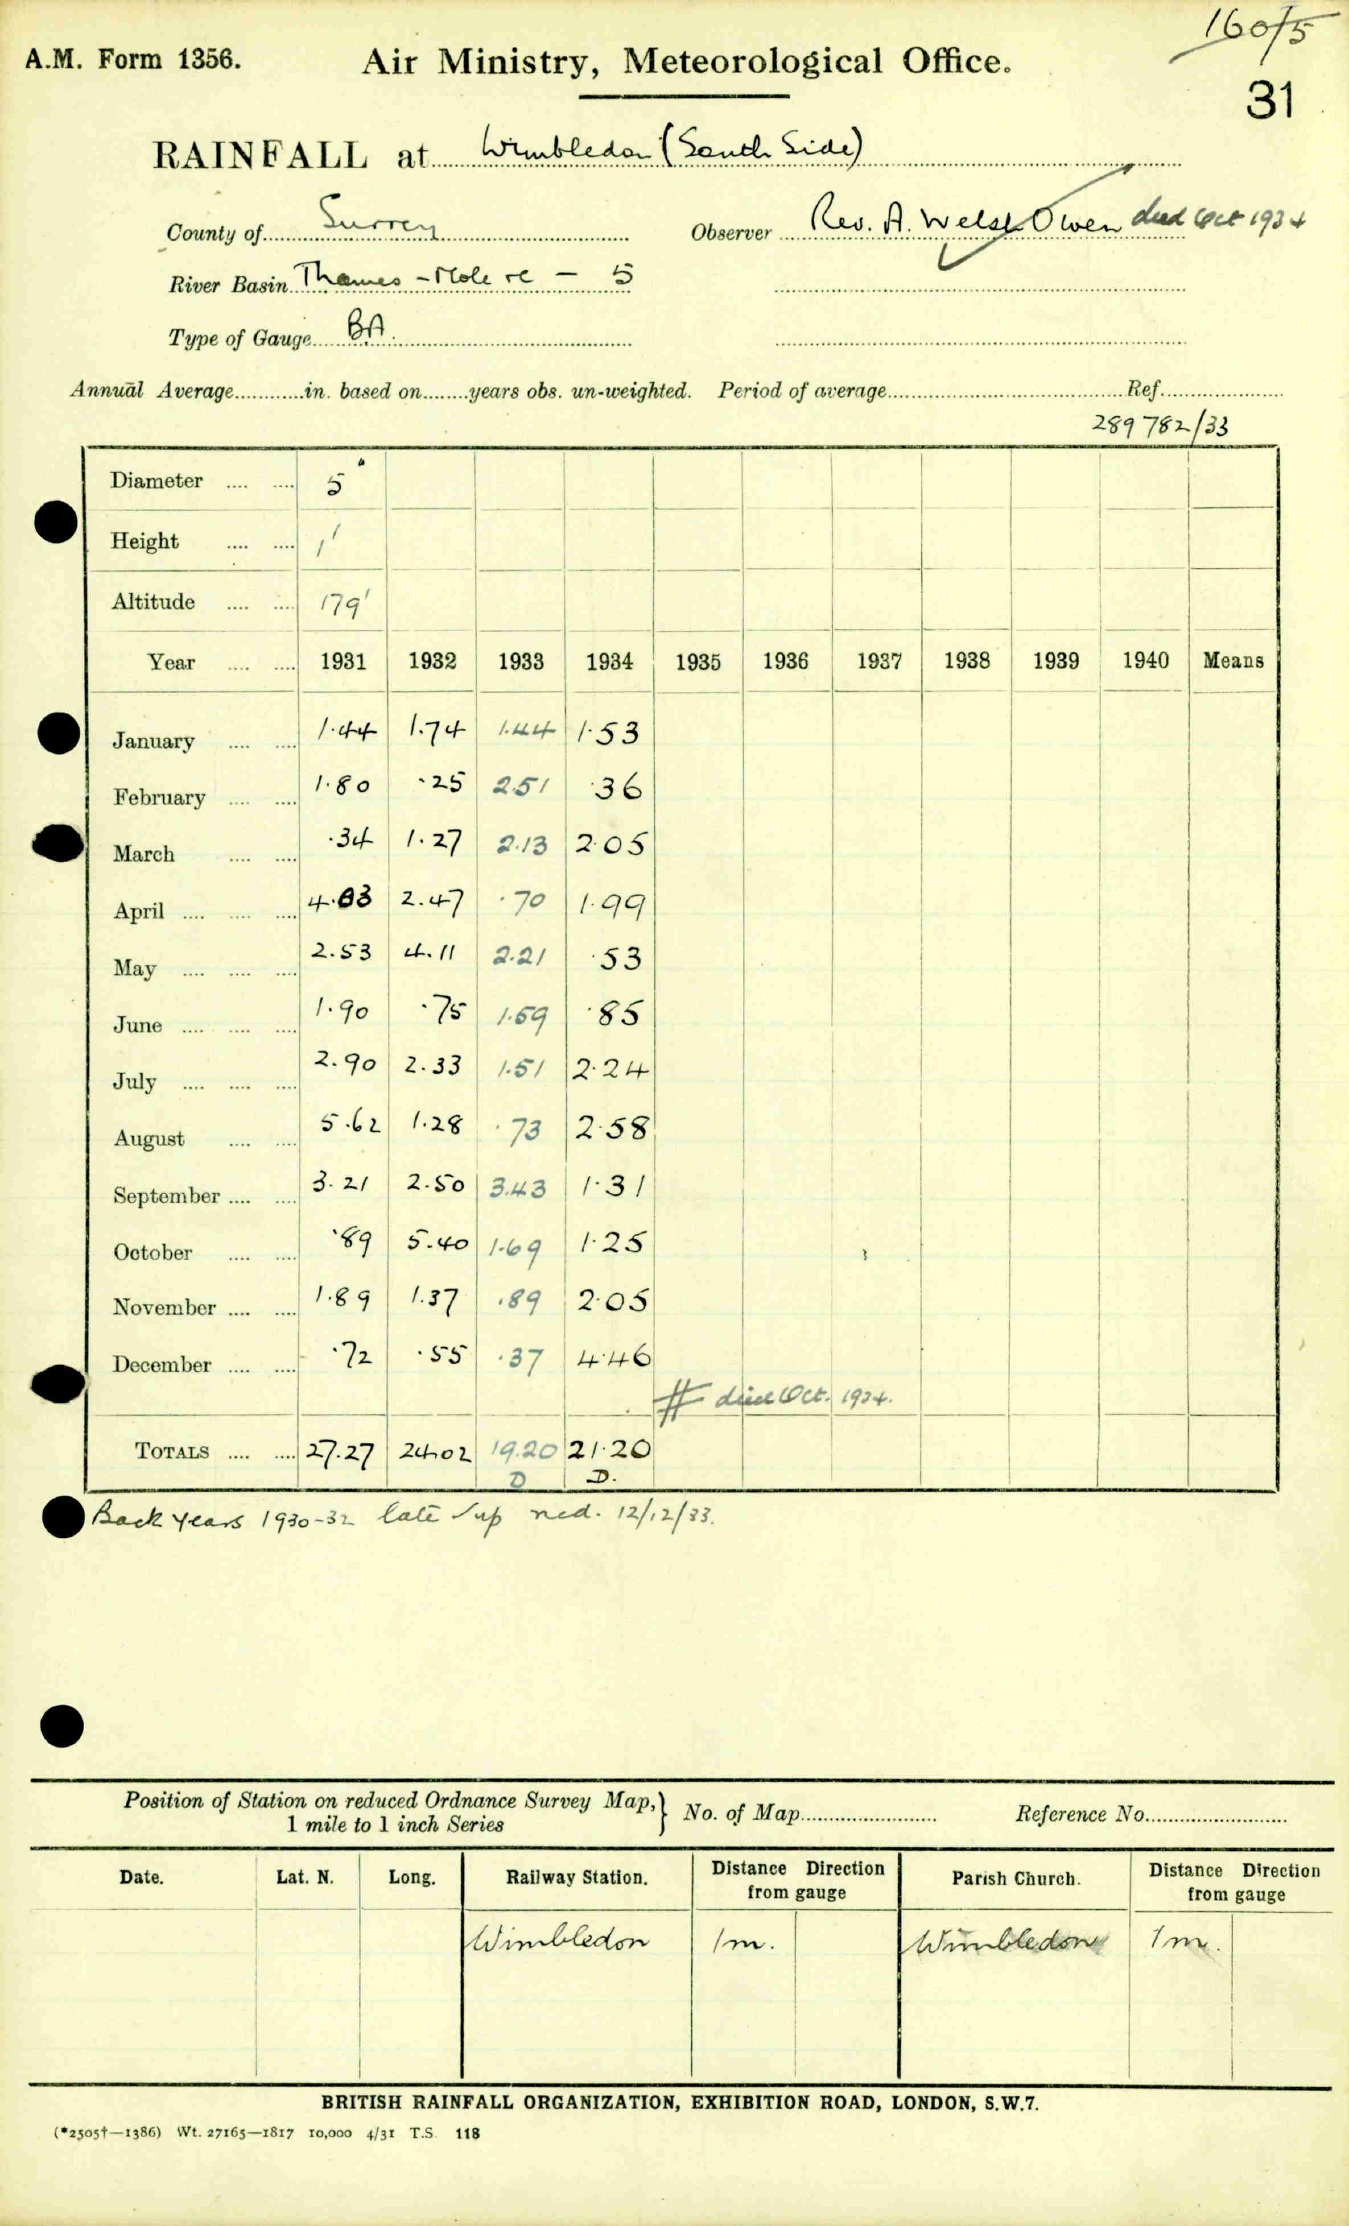 160/5
A.M. Form 1356.
Air Ministry, Meteorological Office.
31
RAINFALL at Wimbledon (South Side)
County of Surrey Observer Rev. A. Welsh Owen died Oct 1934
River Basin Thames - Mole rc - 5
Type of Gauge BA.
Annual Average in. based on years obs. un-weighted. Period of average Ref.
289782/33
Diameter 5"
Height 1'
Altitude 179'
Year 1931 1932 1933 1934 1935 1936 1937 1938 1939 1940 Means
January 1.44 1.74 1.44 1.53
February 1.80 .25 2.51 .36
March .34 1.27 2.13 2.05
April 4.03 2.47 .70 1.99
May 2.53 4.11 2.21 .53
June 1.90 .75 1.59 .85
July 2.90 2.33 1.51 2.24
August 5.62 1.28 .73 2.58
September 3.21 2.50 3.43 1.31
October .89 5.40 1.69 1.25
November 1.89 1.37 .89 2.05
December .72 .55 .37 4.46
# died Oct. 1934.
TOTALS 27.27 24.02 19.20 21.20
D D.
Back years 1930-32 late /up 12/12/33.
Position of Station on reduced Ordnance Survey Map, } No. of Map Reference No.
1 mile to 1 inch Series
Date. Lat. N. Long. Railway Station. Distance Direction from gauge Parish Church. Distance Direction from gauge
Wimbledon 1m. Wimbledon 1m.
BRITISH RAINFALL ORGANIZATION, EXHIBITION ROAD, LONDON, S.W.7.
(*2505†—1386) Wt. 27165—1817 10,000 4/31 T.S. 118